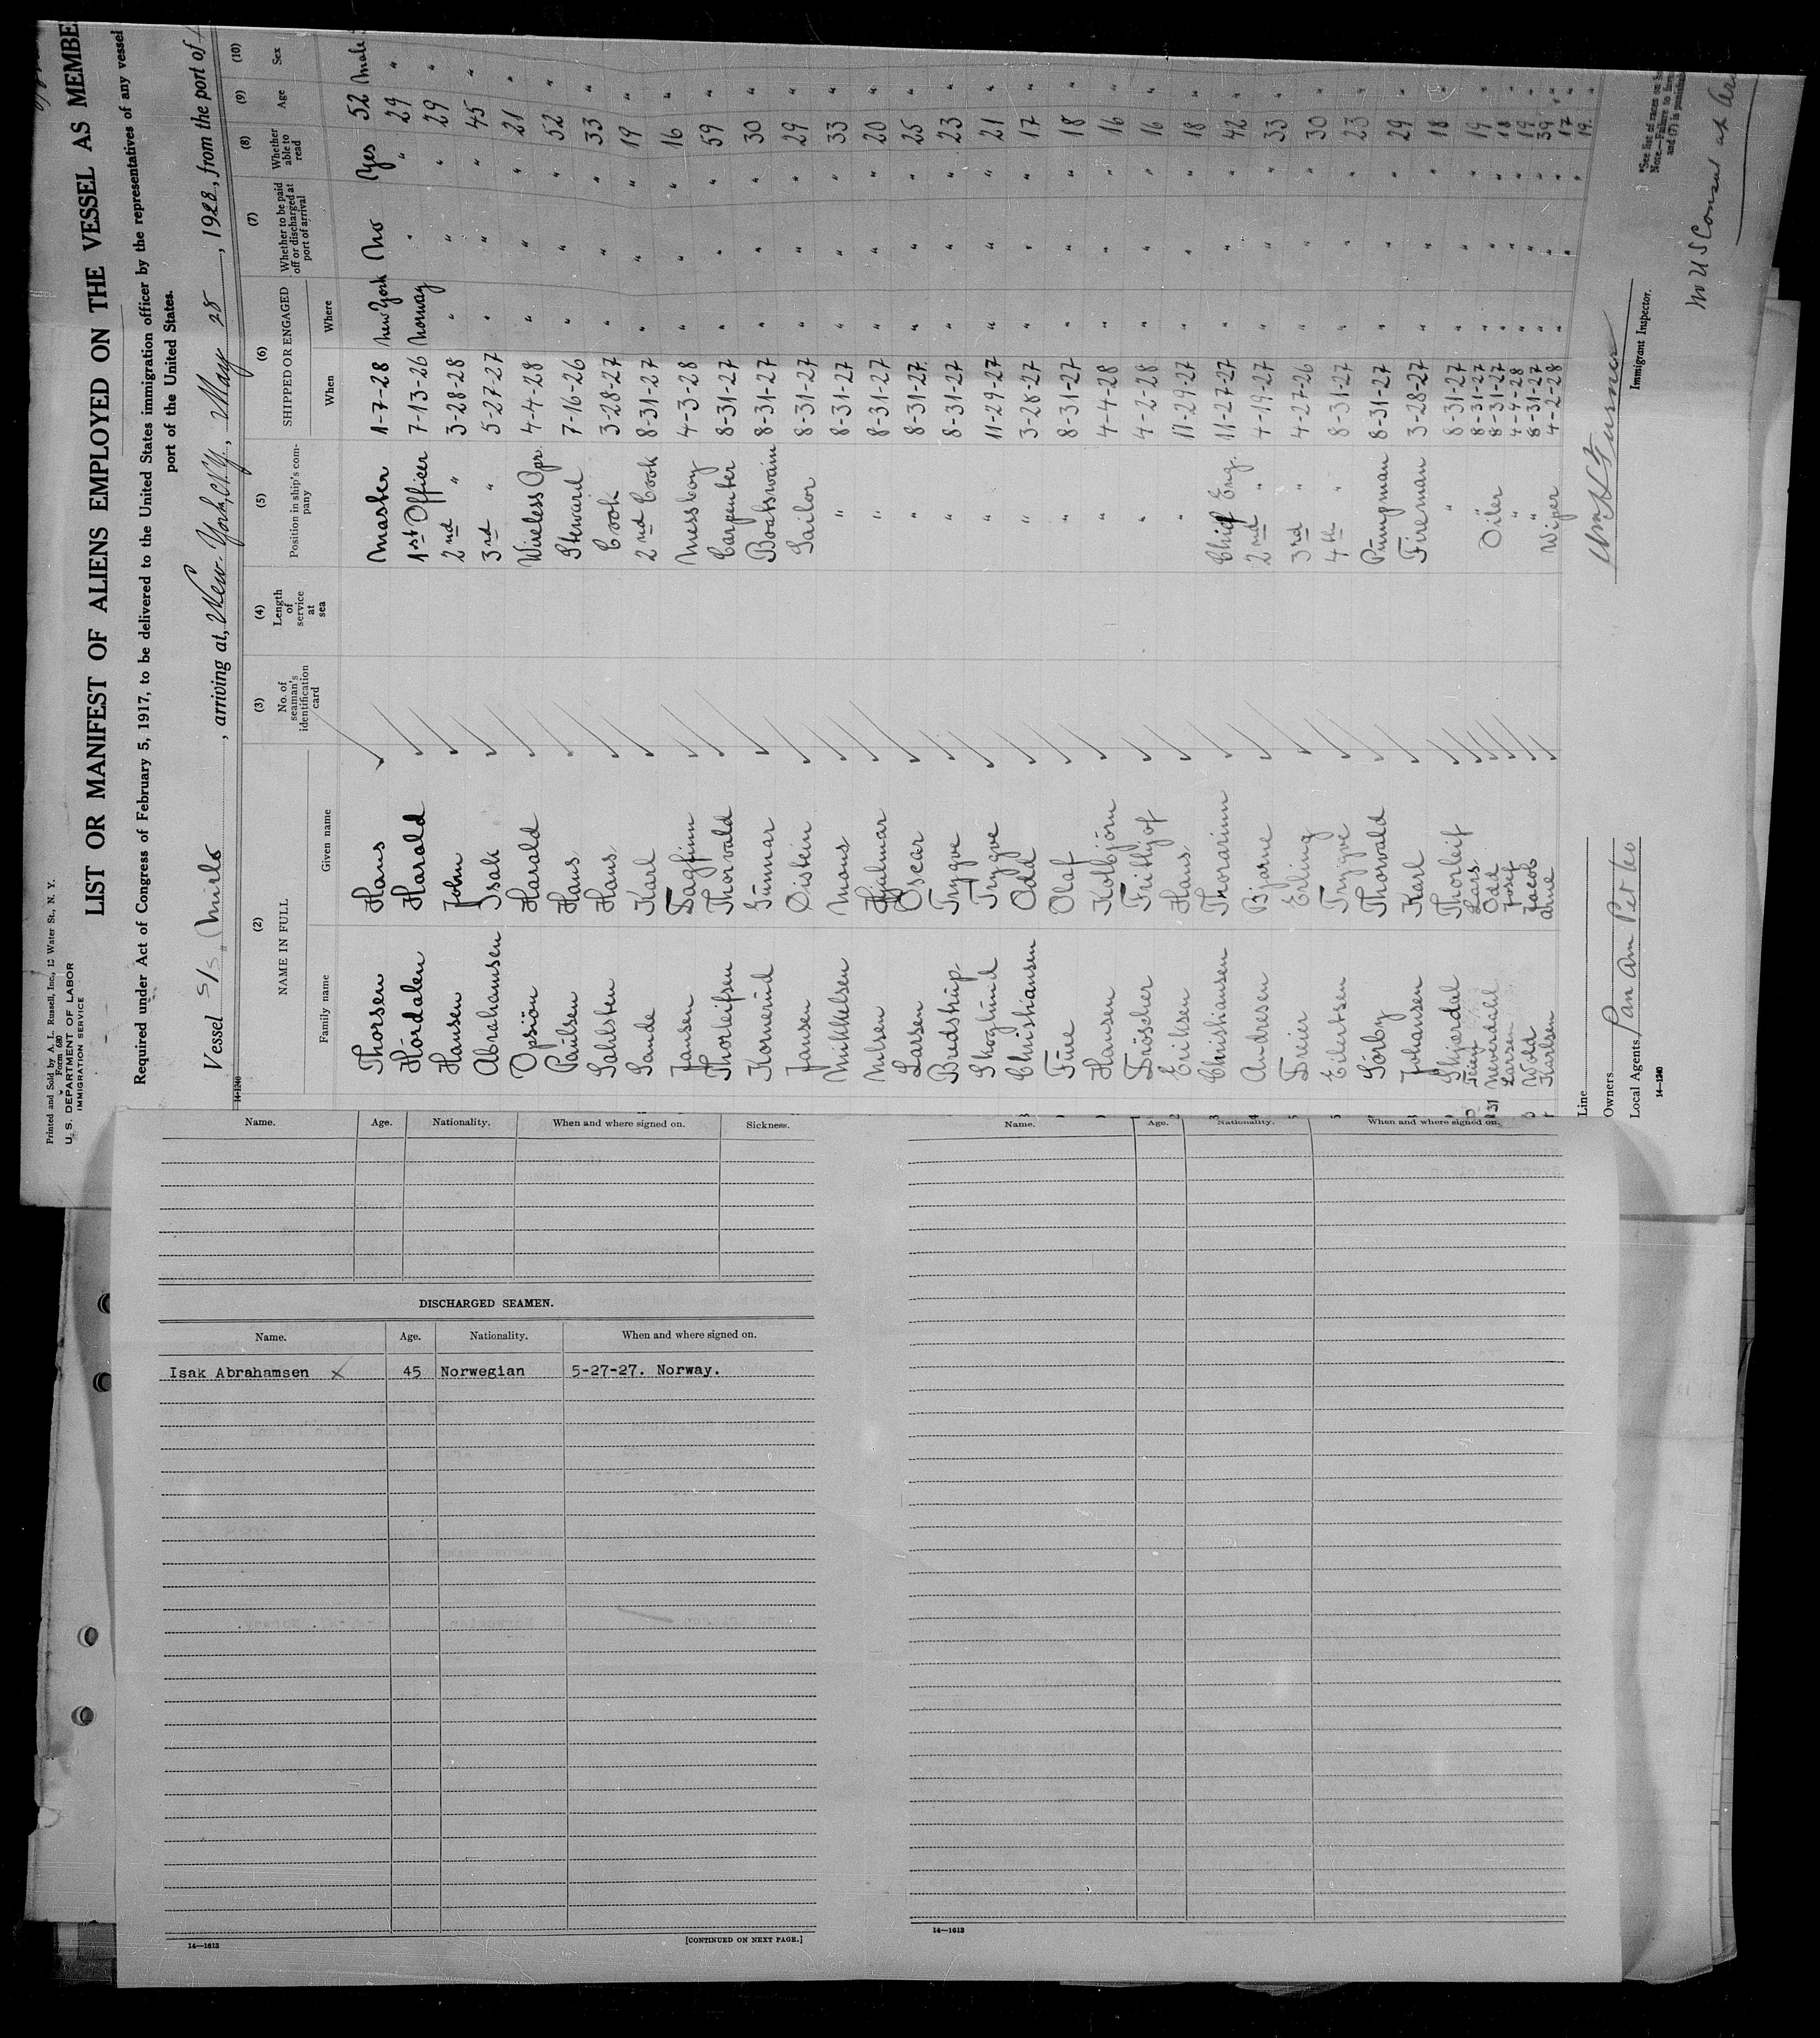 Printed and Sold by A. L. Russell, Inc., Water St., N. Y.
Form 680
U. S. DEPARTMENT OF LABOR
IMMIGRATION SERVICE
LIST OR MANIFEST OF ALIENS EMPLOYED ON THE VESSEL AS MEMBE
Required under Act of Congress of February 5, 1917, to be delivered to the United States immigration officer by the representatives of any vessel
port of the United States.
Vessel S/S "Mirlo, arriving at, New York, N.Y., May 28, 1928, from the port of
14-1240
(2) (3) (4) (5) (6) (7) (8) (9) (10)
NAME IN FULL No. of seaman's identification card Length of service at sea Position in ship's company SHIPPED OR ENGAGED Whether to be paid off or discharged at port of arrival Whether able to read Age Sex
Family name Given name When Where
Thorsen Hans Master 1-7-28 New York No Yes 52 Male
Hordalen Harald 1st Officer 7-13-26 Norway " " 29 "
Hansen John 2nd " 3-28-28 " " " 29 "
Abrahamsen Isak 3rd " 5-27-27 " " " 45 "
Opsion Harald Wireless Opr. 4-4-28 " " " 21 "
Paulsen Hans Steward 7-16-26 " " " 52 "
Sahlsten Hans Cook 3-28-27 " " " 33 "
Sande Karl 2nd Cook 8-31-27 " " " 19 "
Jansen Dagfinn Messboy 4-3-28 " " " 16 "
Thorleifsen Thorvald Carpenter 8-31-27 " " " 59 "
Kornerud Gunnar Boatswain 8-31-27 " " " 30 "
Jansen Oistein Sailor 8-31-27 " " " 29 "
Mikkelsen Mons " 8-31-27 " " " 33 "
Nilsen Hjalmar " 8-31-27 " " " 20 "
Larsen Oscar " 8-31-27 " " " 25 "
Budstrup Trygve " 8-31-27 " " " 23 "
Skoglund Trygve " 11-29-27 " " " 21 "
Christiansen Odd " 3-28-27 " " " 17 "
Fure Olaf " 8-31-27 " " " 18 "
Hansen Kolbjørn " 4-4-28 " " " 16 "
Dröscher Frithjof " 4-2-28 " " " 16 "
Eriksen Hans " 11-29-27 " " " 18 "
Christiansen Thorarinn Chief Eng. 11-27-27 " " " 42 "
Andresen Bjarne 2nd " 4-19-27 " " " 33 "
Dreier Erling 3rd " 4-27-26 " " " 30 "
Eilertsen Trygve 4th " 8-31-27 " " " 23 "
Sörby Thorvald Pumpman 8-31-27 " " " 29 "
Johansen Karl Fireman 3-28-27 " " " 18 "
Skjærdal Thorleif " 8-31-27 " " " 19 "
Lars 8-31-27 " " " 18 "
31 Neverdahl Odd Oiler 8-31-27 " " " 19 "
Larsen Josef " 4-4-28 " " " 39 "
Wold Jacob " 8-31-27 " " " 17 "
Karlsen Arne Wiper 4-2-28 " " " 19 "
Line
Owners
Local Agents, Pan Am Pet Co
14-1240
Wm H Turner
Immigrant Inspector.
No US Consul at
*See list of races on
Note.—Failure to
and (7) is punishable
Name. Age. Nationality. When and where signed on. Sickness.
DISCHARGED SEAMEN.
Name. Age. Nationality. When and where signed on.
Isak Abrahamsen X 45 Norwegian 5-27-27. Norway.
14—1613 [CONTINUED ON NEXT PAGE.]
Name. Age. Nationality. When and where signed on.
14—1613